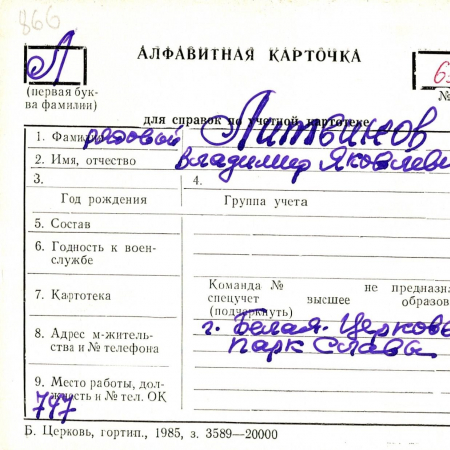 866
Л
АЛФАВИТНАЯ КАРТОЧКА
6
(первая бук-
ва фамилии)
№
для справок по учетной картотеке
1. Фамилия рядовой Литвинов
2. Имя, отчество Владимир Яковлеви
3.
4.
Год рождения
Группа учета
5. Состав
6. Годность к воен-
службе
7. Картотека
Команда № не предназна
спецучет высшее образов
(подчеркнуть)
8. Адрес м-житель-
ства и № телефона
г. Белая-Церковь
Парк Славы
9. Место работы, дол-
жность и № тел. ОК
747
Б. Церковь, гортип., 1985, з. 3589—20000